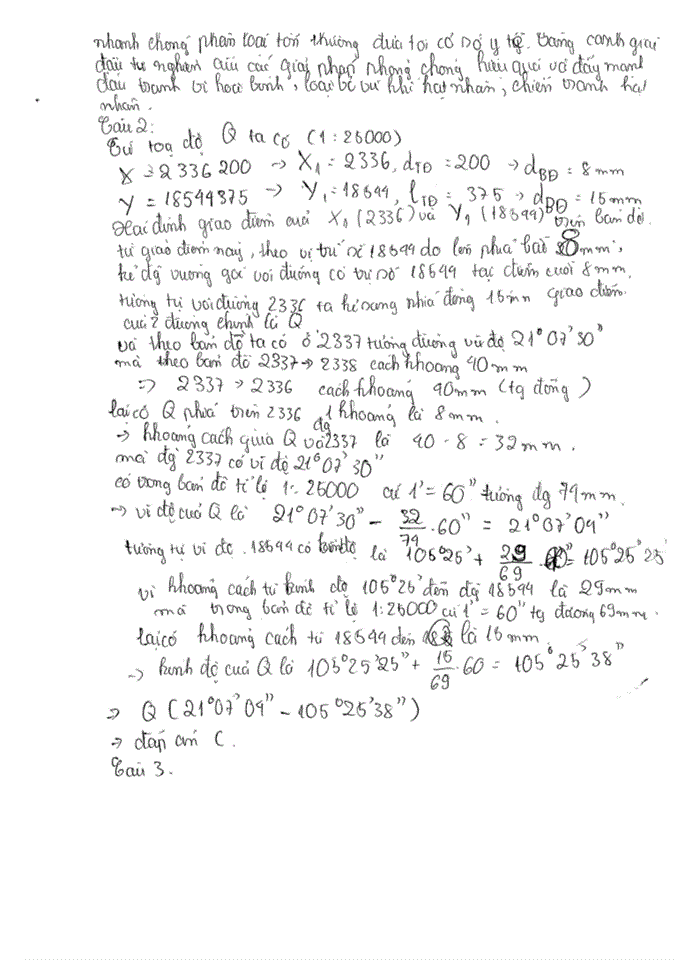 nhanh chóng phân loại tổn thương đưa tới cơ sở y tế. Bằng cạnh giai
đấu tư nghiên cứu các giải pháp phòng chống hữu quả và đẩy mạnh
đấu tranh vì hoà bình, loại bỏ vũ khí hạt nhân, chiến tranh hạt
nhân.
Câu 2:
Từ toạ độ Q ta có (1:25000)
X = 2336200 -> X₁ = 2336, dTĐ = 200 -> dBĐ = 8mm
Y = 18544375 -> Y₁ = 18544, lTĐ = 375 -> dBĐ = 15mm
Xác định giao điểm của X₁ (2336) và Y₁ (18544) trên bản đồ.
từ giao điểm này, theo vị trí số 18544 đo lên phía bắc 8mm,
kẻ đg vuông góc với đường có trị số 18544 tại điểm cuối 8mm.
tương tự với đường 2336 ta kẻ sang phía đông 15mm giao điểm
của 2 đường chính là Q
và theo bản đồ ta có ở 2337 tương đương vĩ độ 21°07'30"
mà theo bản đồ 2337 -> 2338 cách khoảng 40mm
=> 2337 -> 2336 cách khoảng 40mm (tg đồng)
lại có Q phía trên 2336 1 khoảng là 8mm.
-> khoảng cách giữa Q và đg 2337 là 40 - 8 = 32mm.
mà đg 2337 có vĩ độ 21°07'30"
có trong bản đồ tỉ lệ 1:25000 cứ 1' = 60" tương đg 74mm.
-> vĩ độ của Q là 21°07'30" - 32/74 .60" = 21°07'04"
tương tự vĩ độ 18544 có kinh độ là 105°25' + 29/69 .60" = 105°25'25"
vì khoảng cách từ kinh độ 105°25' đến đg 18544 là 29mm
mà trong bản đồ tỉ lệ 1:25000 cứ 1' = 60" tg đương 69mm.
lại có khoảng cách từ 18544 đến là 15mm
-> kinh độ của Q là 105°25'25" + 15/69 .60 = 105°25'38"
=> Q (21°07'04" - 105°25'38")
-> đáp án C.
Câu 3.